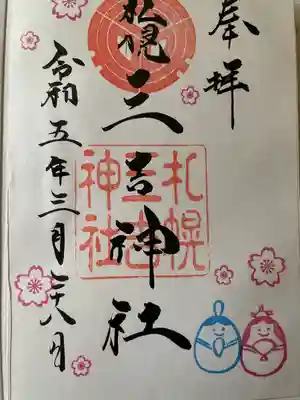 奉拝
札幌
三吉神社
札幌
三吉
神社
令和五年三月二十八日